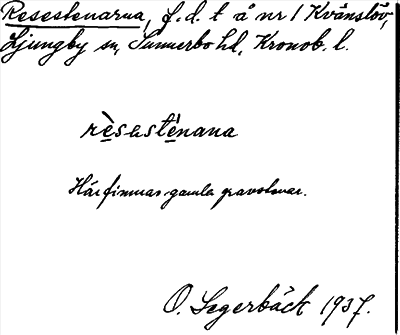 Resestenarna, f.d. t å nr 1 Kvänslöv,
Ljungby sn, Sunnerbo hd, Kronob. l.
rèsestènana
Här finnas gamla gravstenar.
O. Segerbäck 1937.